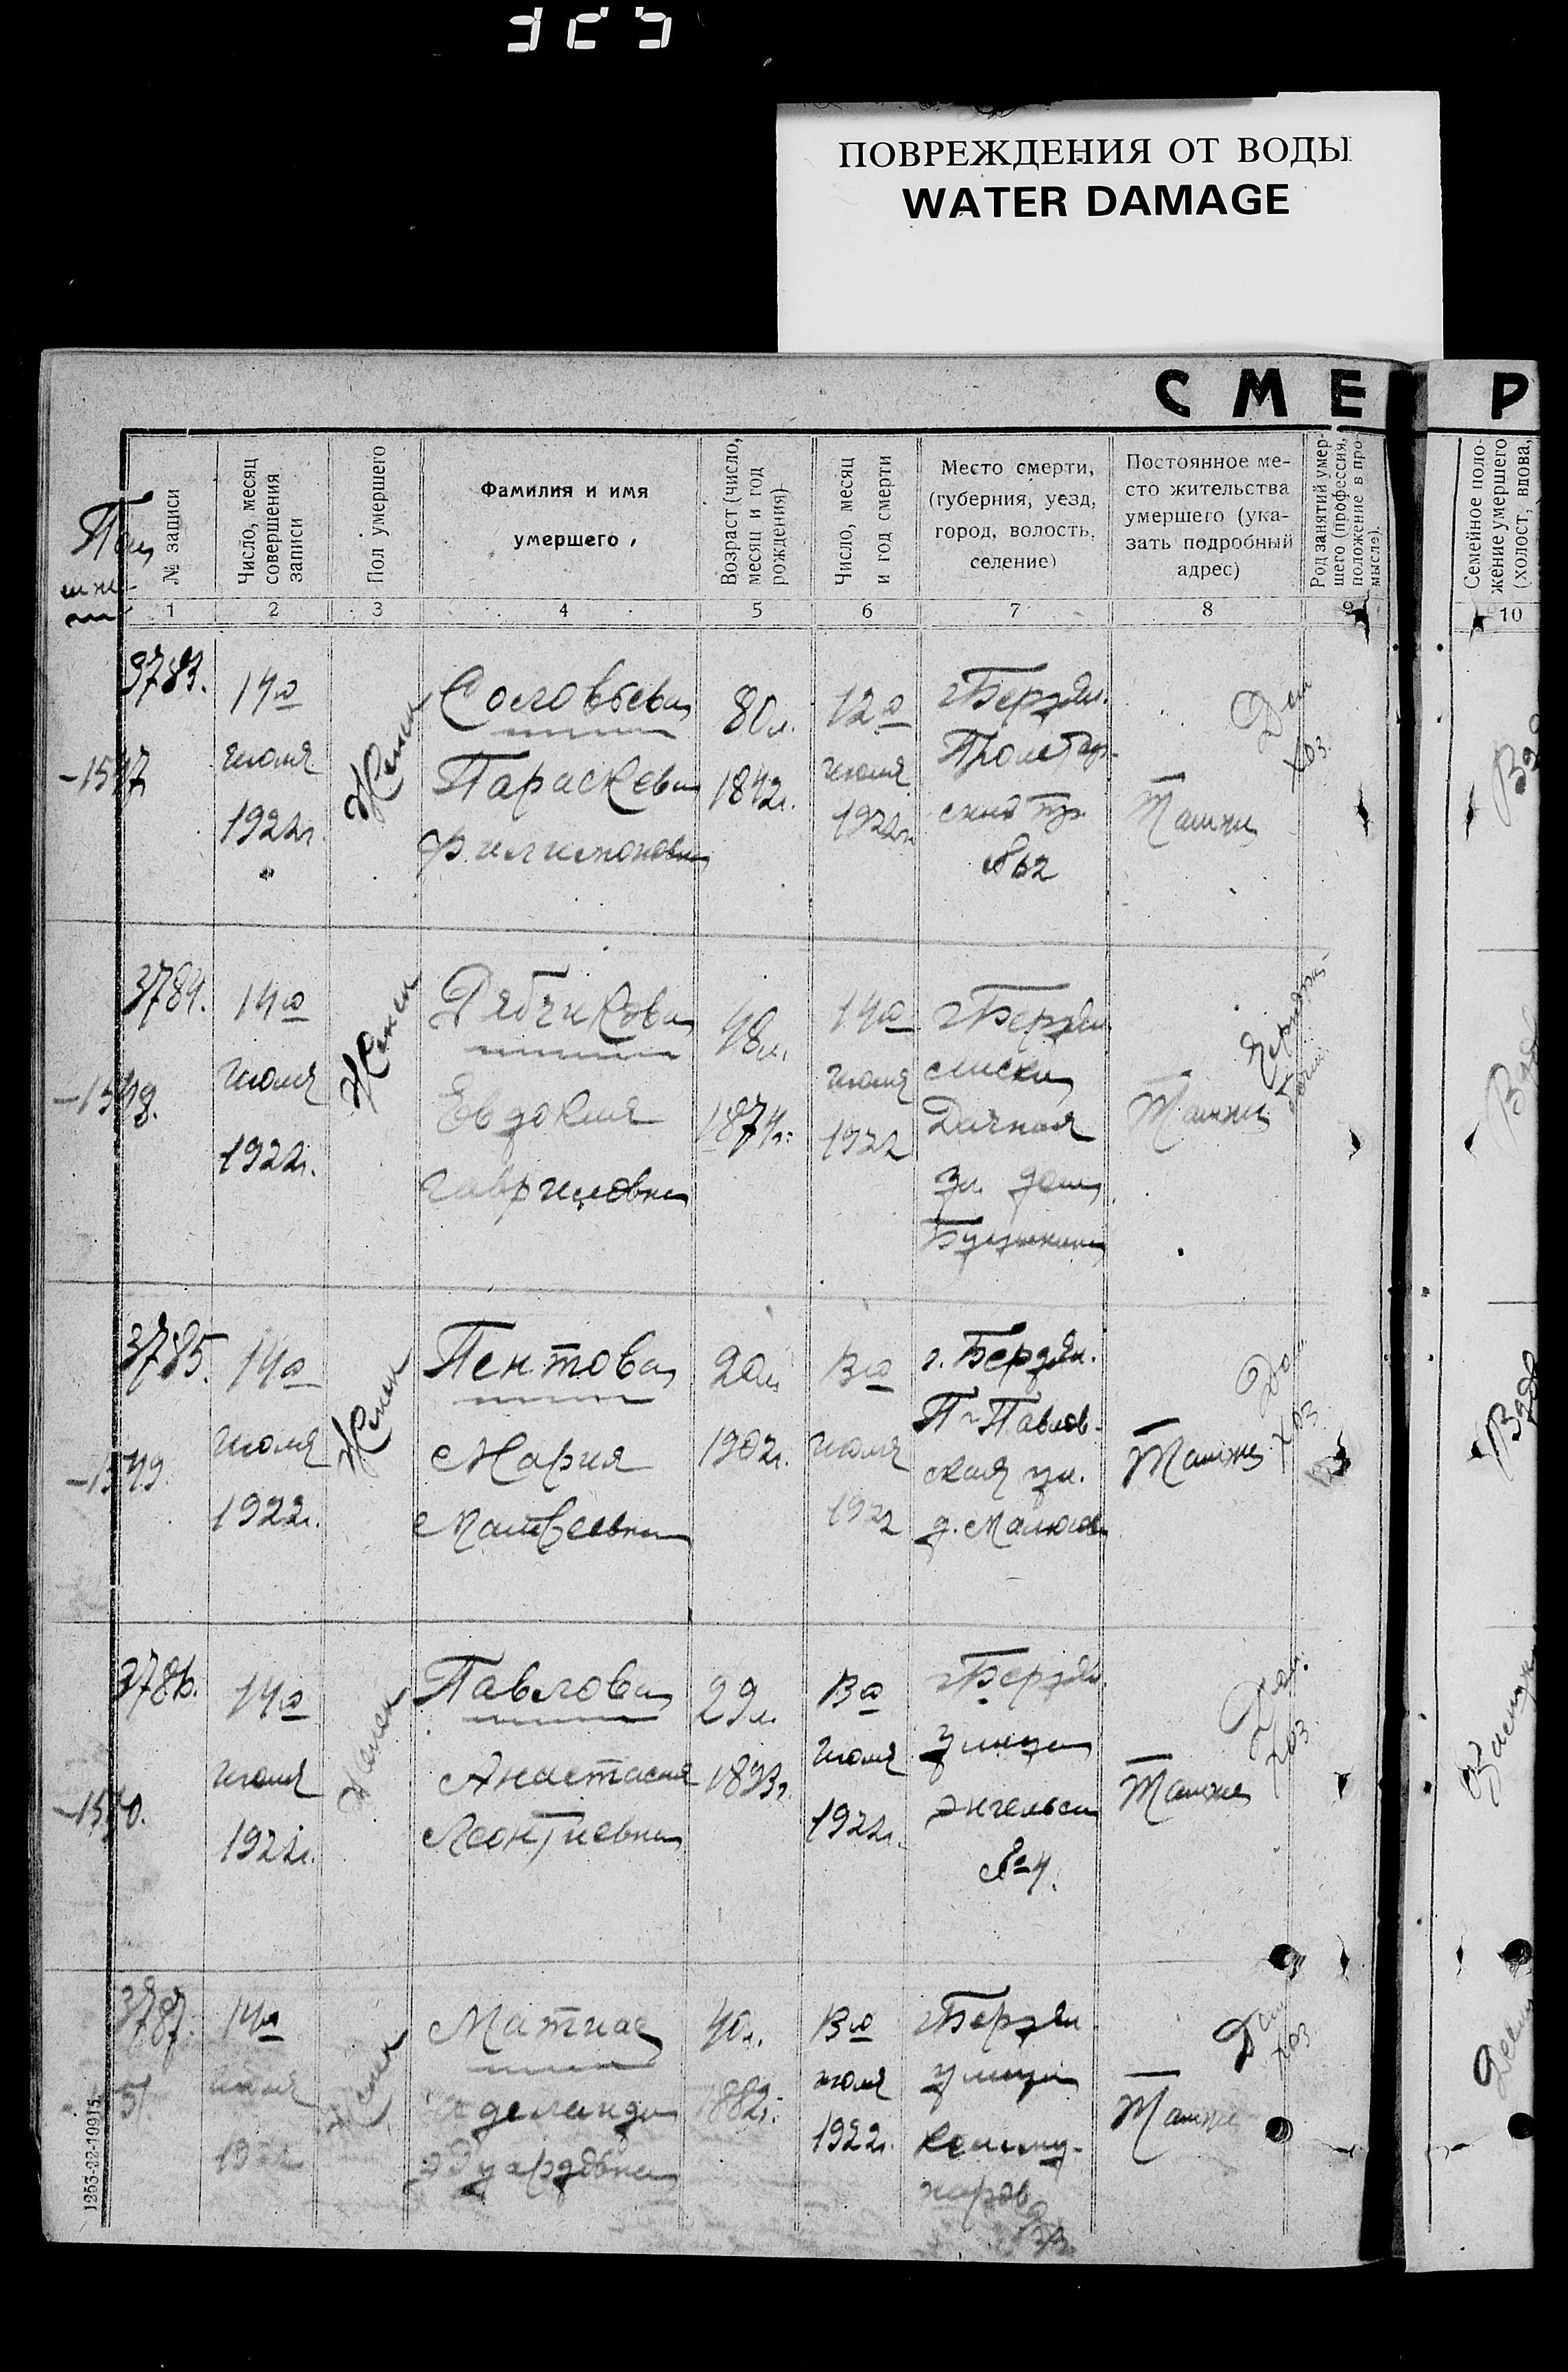 ПОВРЕЖДЕНИЯ ОТ ВОДЫ
WATER DAMAGE
СМЕ Р
№ записи
Число, месяц совершения записи
Пол умершего
Фамилия и имя
умершего,
Возраст (число, месяц и год рождения)
Число, месяц и год смерти
Место смерти,
(губерния, уезд,
город, волость,
селение)
Постоянное ме-
сто жительства
умершего (ука-
зать подробный
адрес)
Род занятий умер-
шего (профессия,
положение в про-
мысле).
Семейное поло-
жение умершего
(холост, вдова,
1 2 3 4 5 6 7 8 9 10
3783.
-1547
14го
июля
1922г.
Женск
Соловьева
Параскева
Филимоновна
80л.
1842г.
12го
июля
1922г.
г Бердян.
Пролетар-
ский пр.
№62
Тамже
Дом
хоз.
3784.
-1548.
14го
июля
1922г.
Женск
Рябчикова
Евдокия
Гавриловна
48л.
1874г.
14го
июля
1922
г Бердян
Дачная
ул. дом
Тамже
3785.
-1549.
14го
июля
1922г.
Женск
Пентова
Мария
Матвеевна
20л
1902г.
13го
июля
1922
г. Бердян.
П-Павлов-
ская ул.
Тамже
Дом.
хоз
3786.
-1550.
14го
июля
1922г.
Женск
Павлова
Анастасия
Леонтиевна
29л.
1893г.
13го
июля
1922г.
г Бердян.
улица
Энгельса
№4.
Тамже
Дом.
хоз
3787.
51
14го
июля
1922
Женск
Матиас
Аделаида
Эдуардовна
40л.
1882г.
13го
июля
1922г.
г Бердян.
улица
Комму-
наров
Тамже
Дом
хоз
1253-22-10915.